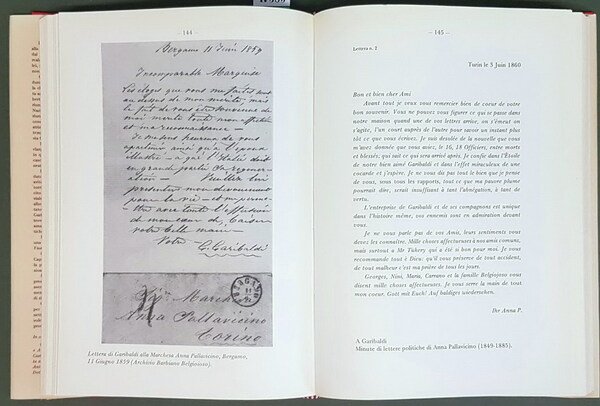 — 144 —
Bergame 11 Juin 1859
Incomparable Marquise
Les éloges que vous me faites sont
au dessus de mon mérite, mais
le fait de vous être souvenue de
moi mérite toute mon affection
et ma reconnaissance —
Je suis heureux de vous
à l'Epoux
Maître — à qui l'Italie doit
en grande partie sa régénération
Veuillez lui
présenter mon dévouement
pour la vie — et me permettre
avec toute l'effusion
de mon cœur de baiser
votre belle main —
Votre G. Garibaldi
March
Anna Pallavicino
Torino
Lettera di Garibaldi alla Marchesa Anna Pallavicino, Bergamo,
11 Giugno 1859 (Archivio Barbiano Belgioioso).
— 145 —
Lettera n. 2
Turin le 3 Juin 1860
Bon et bien cher Ami
Avant tout je veux vous remercier bien de coeur de votre
bon souvenir. Vous ne pouvez vous figurer ce qui se passe dans
notre maison quand une de vos lettres arrive, on s'émeut on
s'agite, l'un court auprès de l'autre pour savoir un instant plus
tôt ce que vous écrivez. Je suis desolée de la nouvelle que vous
m'avez donnée que vous avec, le 16, 18 Officiers, entre morts
et blessés; qui sait ce qui sera arrivé après. Je confie dans l'Étoile
de notre bien aimé Garibaldi et dans l'effet miraculeux de une
cocarde et j'espère. Je ne vous dis pas tout le bien que je pense
de vous, sous tous les rapports, tout ce que ma pauvre plume
pourrait dire, serait insuffisant à tant d'abnégation, à tant de
vertu.
L'entreprise de Garibaldi et de ses compagnons est unique
dans l'histoire même, vos ennemis sont en admiration devant
vous.
Je ne vous parle pas de vos Amis, leurs sentiments vous
devez les connaître. Mille choses affectueuses à nos amis communs,
mais surtout a Mr Tükery qui a été si bon pour moi. Je vous
recommande tout e Dieu: qu'il vous préserve de tout accident,
de tout malheur c'est ma prière de tous les jours.
Georges, Nini, Maria, Carrano et la famille Belgioioso vous
disent mille choses affectueuses. Je vous serre la main de tout
mon coeur. Gott mit Euch! Auf baldiges wiedersehen.
Ihr Anna P.
A Garibaldi
Minute di lettere politiche di Anna Pallavicino (1849-1885).